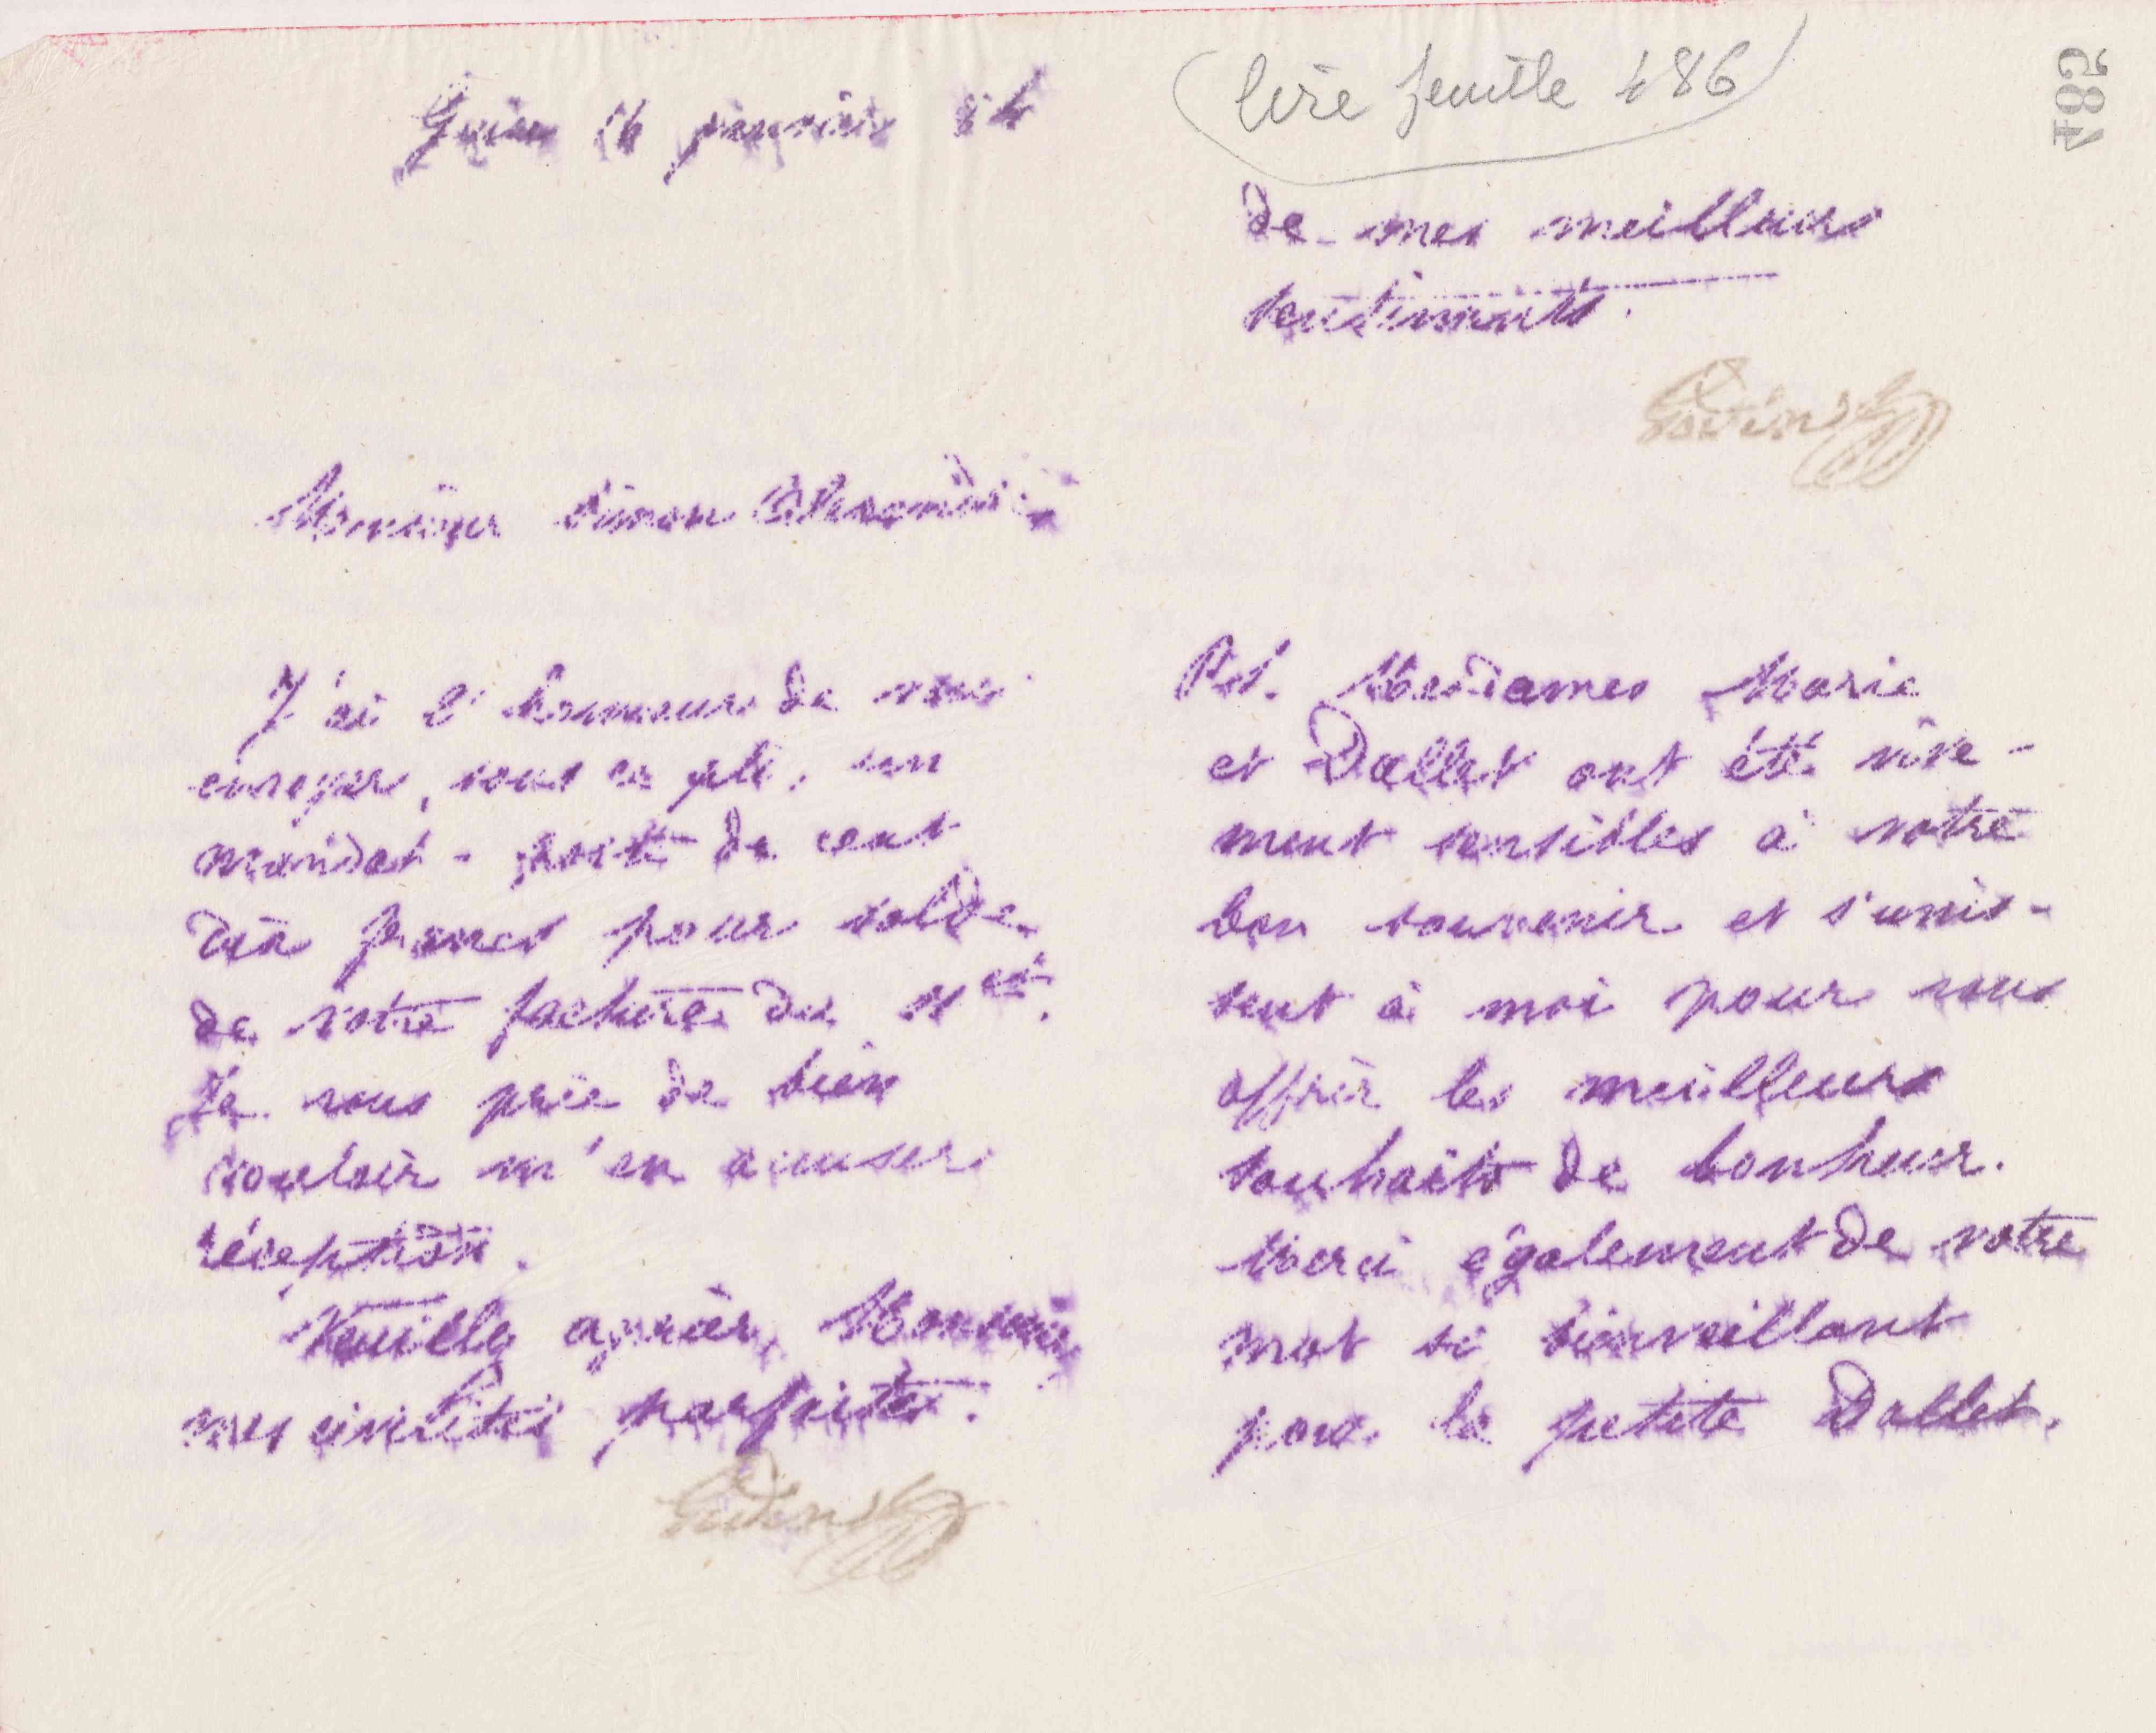 Guise 16 janvier 84
Monsieur Simon
J'ai l'honneur de vous
envoyer, sous ce pli, un
mandat-poste de cent
dix francs pour solde
de votre facture du
Je vous prie de bien
vouloir m'en accuser
réception.
Veuillez agréer, Monsieur
mes civilités parfaites.
Godin
(lire feuille 486)
485
de mes meilleurs
sentiments.
Godin
P.S. Mesdames Marie
et Dallet ont été vive-
ment sensibles à votre
bon souvenir et s'unis-
sent à moi pour vous
offrir les meilleurs
souhaits de bonheur.
Merci également de votre
mot si bienveillant
pour la petite Dallet.